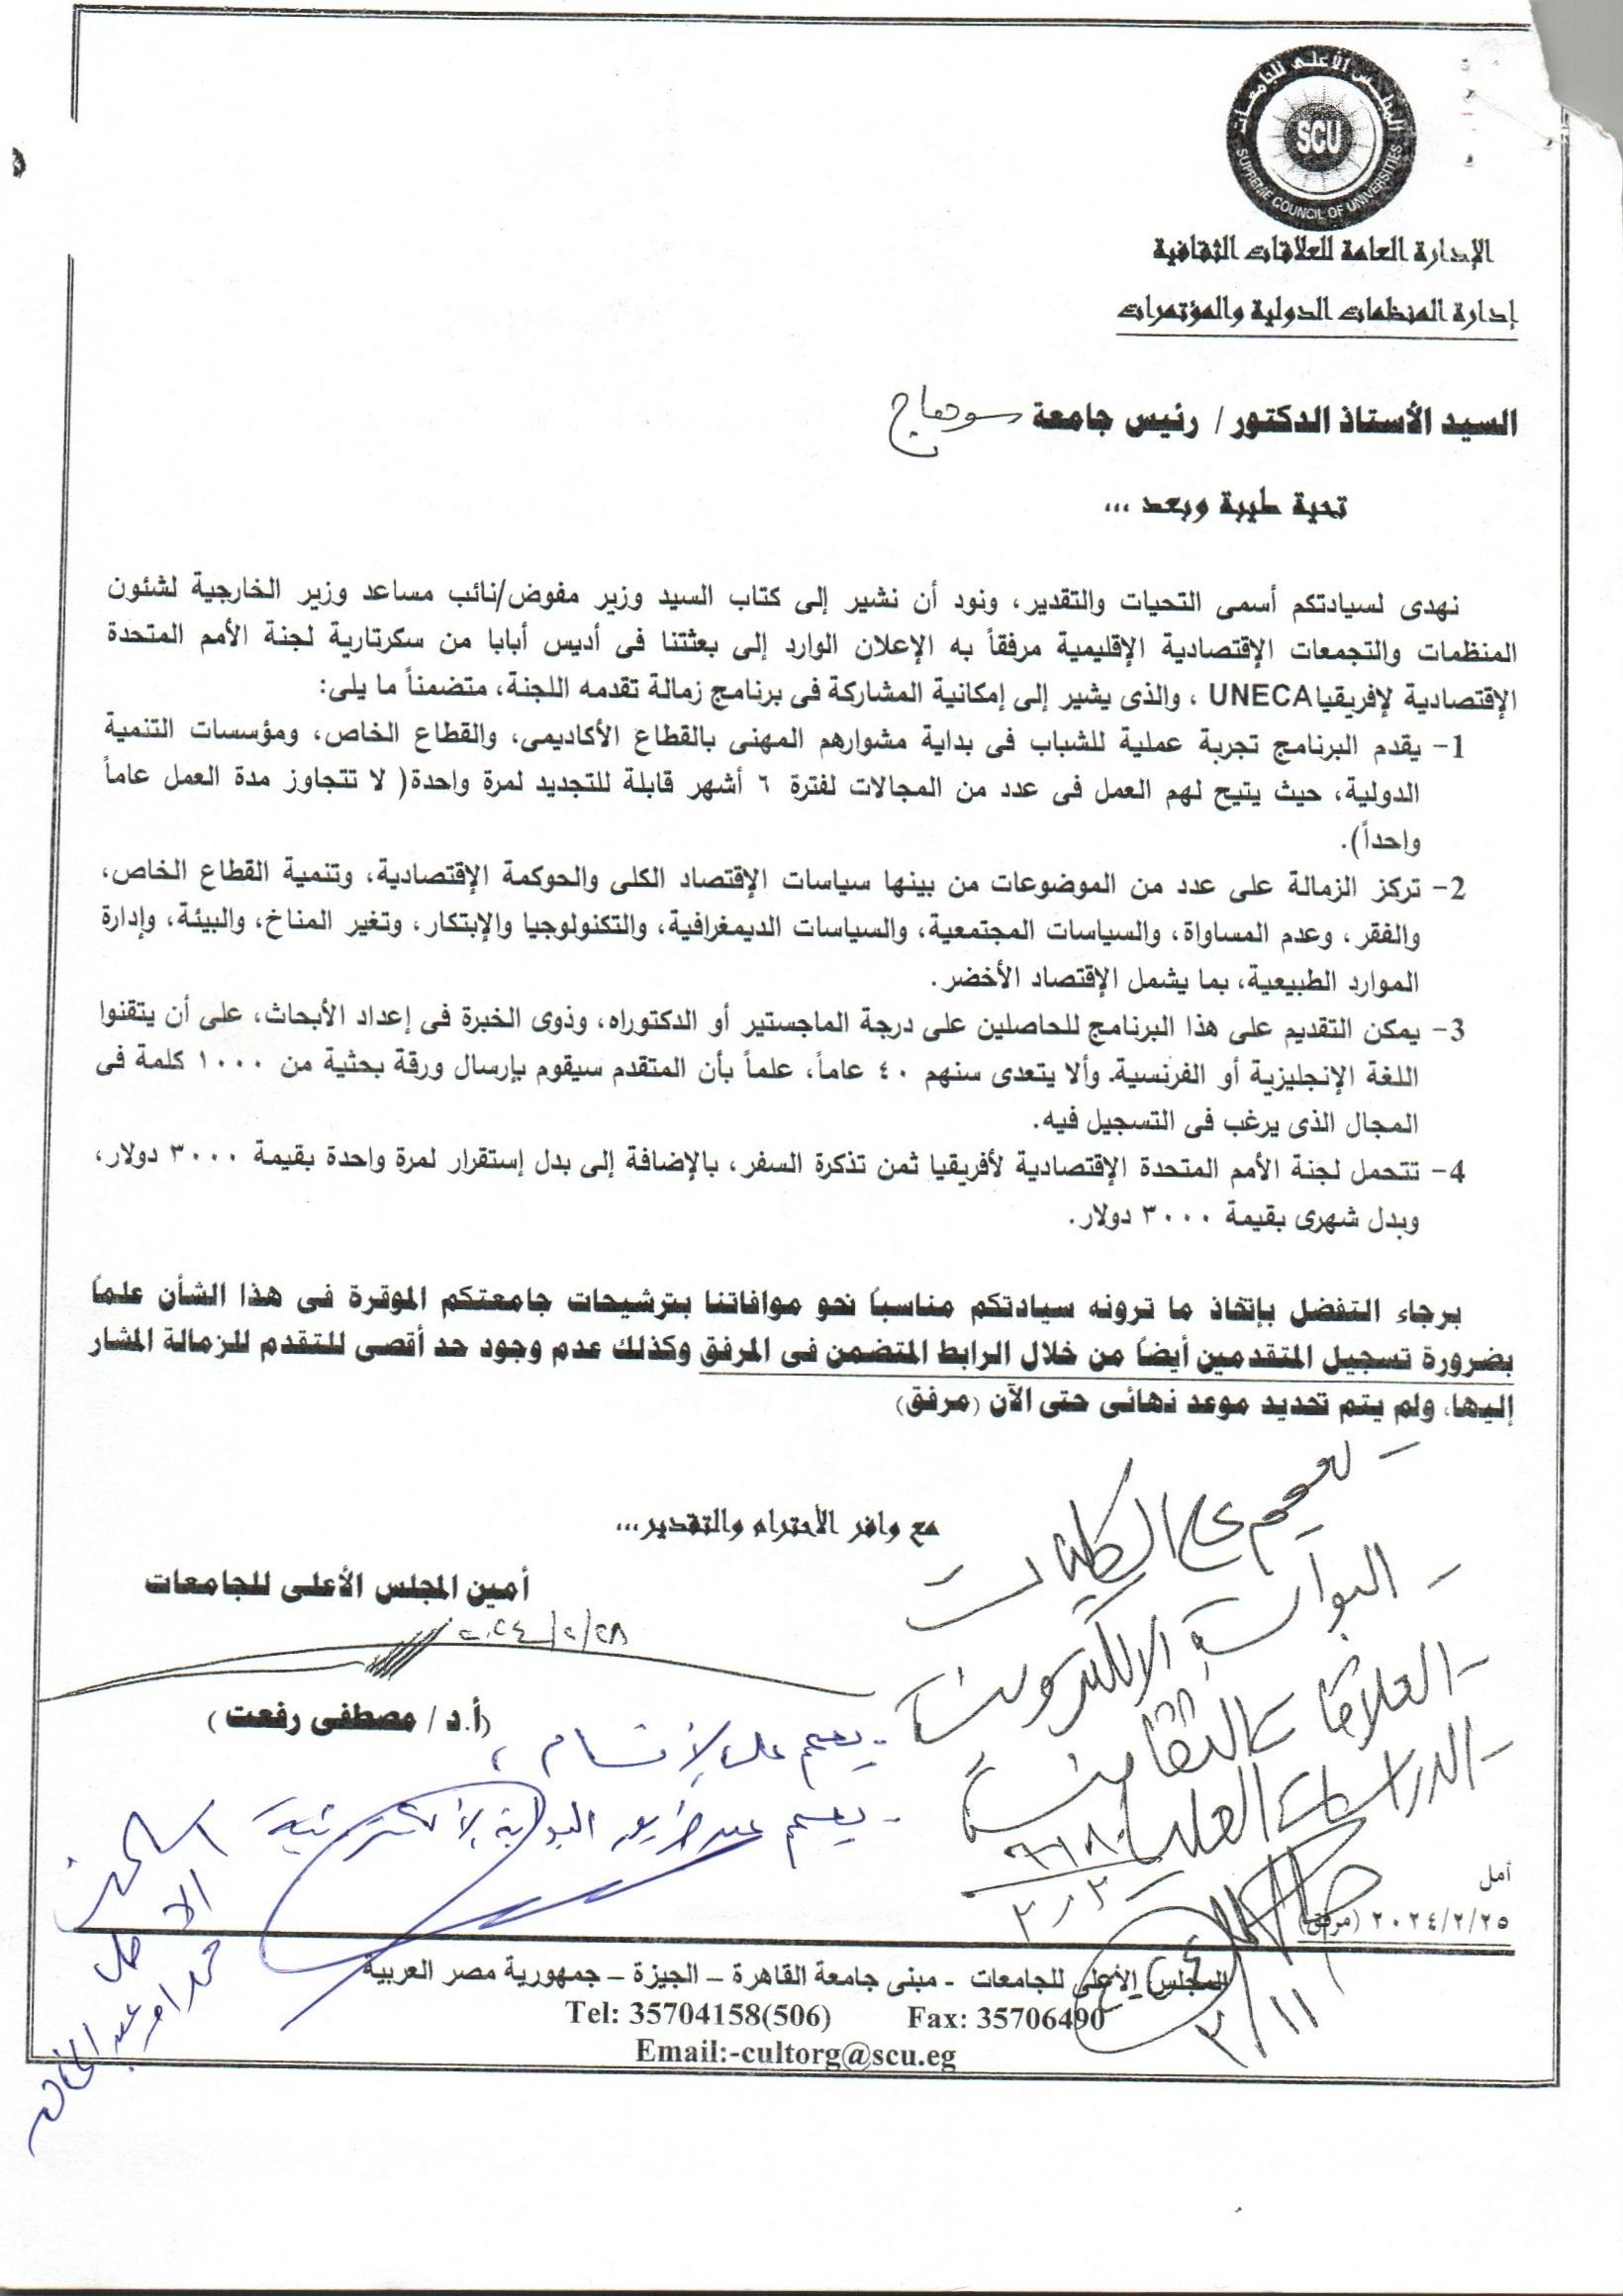 المجلس الأعلى للجامعات
SCU
SUPREME COUNCIL OF UNIVERSITIES
الإدارة العامة للعلاقات الثقافية
إدارة المنظمات الدولية والمؤتمرات
السيد الأستاذ الدكتور/ رئيس جامعة سوهاج
تحية طيبة وبعد ...
نهدى لسيادتكم أسمى التحيات والتقدير، ونود أن نشير إلى كتاب السيد وزير مفوض/نائب مساعد وزير الخارجية لشئون
المنظمات والتجمعات الإقتصادية الإقليمية مرفقاً به الإعلان الوارد إلى بعثتنا فى أديس أبابا من سكرتارية لجنة الأمم المتحدة
الإقتصادية لإفريقيا UNECA ، والذى يشير إلى إمكانية المشاركة فى برنامج زمالة تقدمه اللجنة، متضمناً ما يلى:
1- يقدم البرنامج تجربة عملية للشباب فى بداية مشوارهم المهنى بالقطاع الأكاديمى، والقطاع الخاص، ومؤسسات التنمية
الدولية، حيث يتيح لهم العمل فى عدد من المجالات لفترة ٦ أشهر قابلة للتجديد لمرة واحدة( لا تتجاوز مدة العمل عاماً
واحداً).
2- تركز الزمالة على عدد من الموضوعات من بينها سياسات الإقتصاد الكلى والحوكمة الإقتصادية، وتنمية القطاع الخاص،
والفقر، وعدم المساواة، والسياسات المجتمعية، والسياسات الديمغرافية، والتكنولوجيا والإبتكار، وتغير المناخ، والبيئة، وإدارة
الموارد الطبيعية، بما يشمل الإقتصاد الأخضر.
3- يمكن التقديم على هذا البرنامج للحاصلين على درجة الماجستير أو الدكتوراه، وذوى الخبرة فى إعداد الأبحاث، على أن يتقنوا
اللغة الإنجليزية أو الفرنسية. وألا يتعدى سنهم ٤٠ عاماً، علماً بأن المتقدم سيقوم بإرسال ورقة بحثية من ١٠٠٠ كلمة فى
المجال الذى يرغب فى التسجيل فيه.
4- تتحمل لجنة الأمم المتحدة الإقتصادية لأفريقيا ثمن تذكرة السفر، بالإضافة إلى بدل إستقرار لمرة واحدة بقيمة ٣٠٠٠ دولار،
وبدل شهرى بقيمة ٣٠٠٠ دولار.
برجاء التفضل بإتخاذ ما ترونه سيادتكم مناسباً نحو موافاتنا بترشيحات جامعتكم الموقرة فى هذا الشأن علماً
بضرورة تسجيل المتقدمين أيضاً من خلال الرابط المتضمن فى المرفق وكذلك عدم وجود حد أقصى للتقدم للزمالة المشار
إليها، ولم يتم تحديد موعد نهائى حتى الآن (مرفق)
- تعميم على الكليات
مع وافر الأحترام والتقدير...
- البوابة الالكترونية
أمين المجلس الأعلى للجامعات
٢٠٢٤/٢/٢٨
- العلاقات الثقافية
(أ.د/ مصطفى رفعت)
- الدراسات العليا
- يعمم على الأقسام ،
- يعمم عن طريق البوابة الالكترونية
أمل
٢٠٢٤/٢/٢٥ (مرفق)
٣/١١
المجلس الأعلى للجامعات - مبنى جامعة القاهرة – الجيزة – جمهورية مصر العربية
Tel: 35704158(506) Fax: 35706490
Email:-cultorg@scu.eg